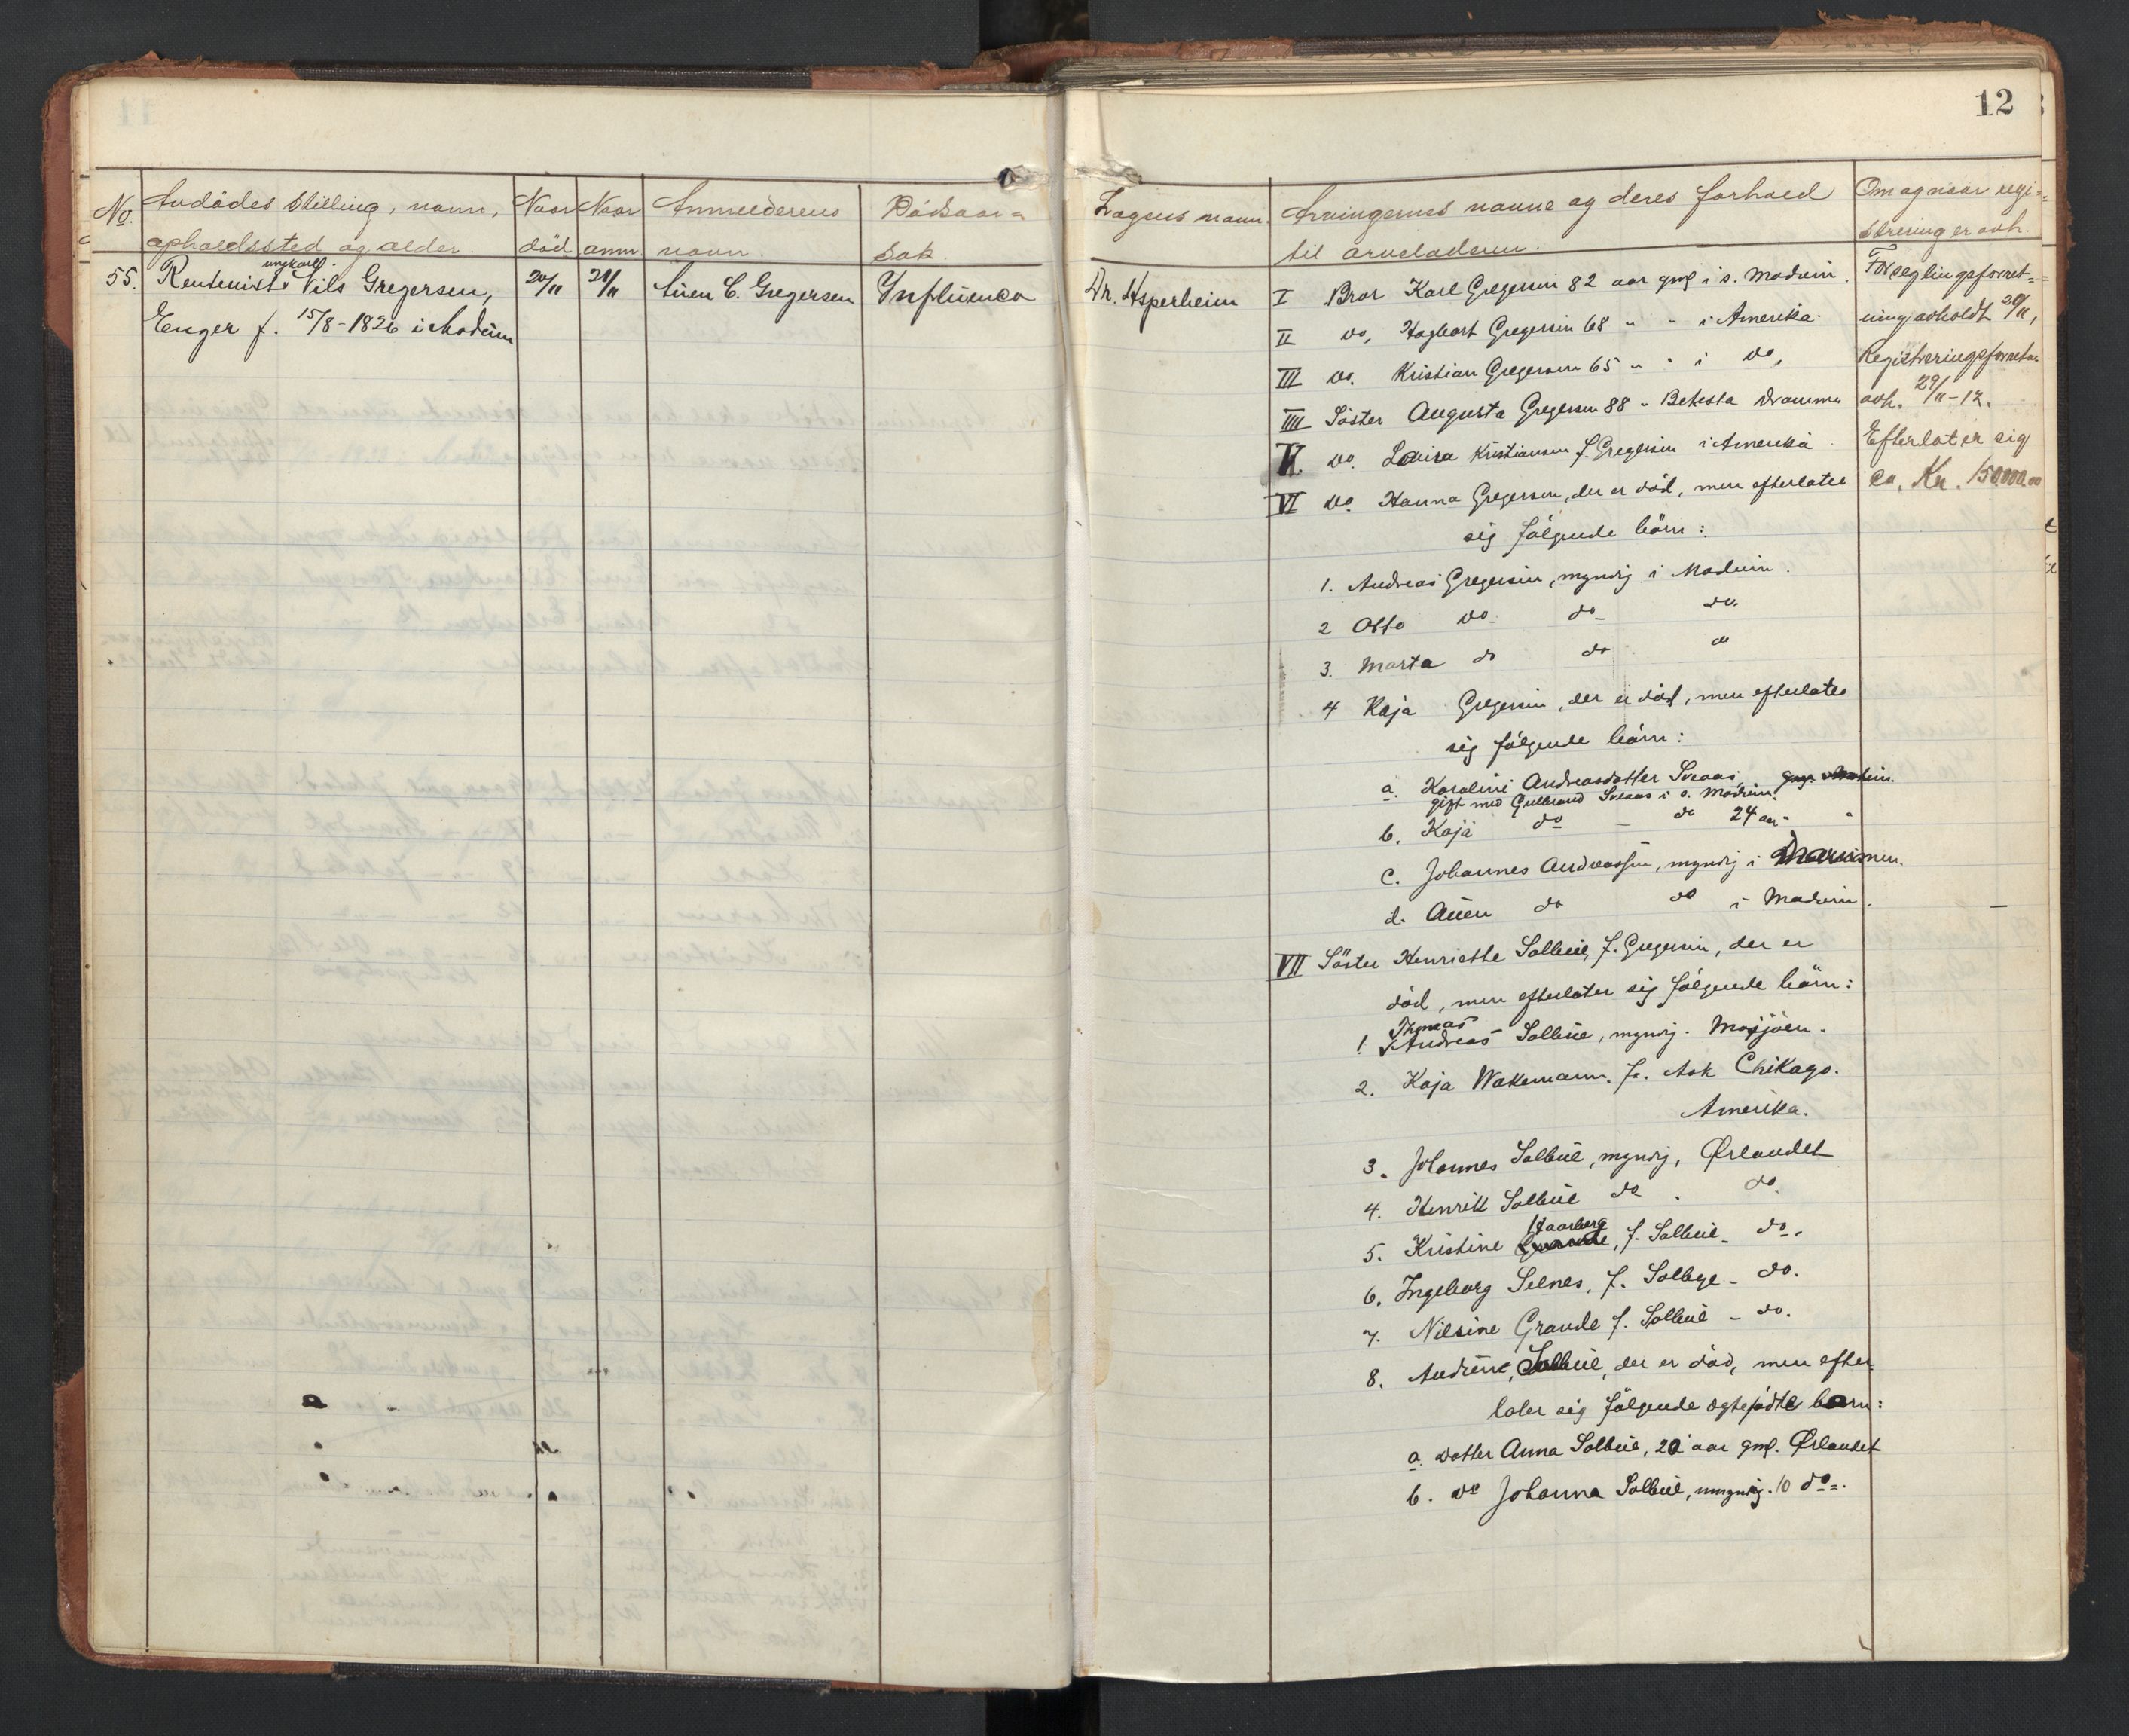 12
No. Avdödes stilling, navn,
opholdssted og alder.
Naar
död
Naar
anm
Anmelderens
navn.
Dödsaar=
sak
55. Rentenist ungkarl. Nils Gregersen,
Enger f. 15/8-1826 i Modum
20/11
21/11
Auen C. Gregersen
Influenca
Lægens navn.
Arvingernes navne og deres forhold
til arveladeren.
Om og naar regi=
strering er avh.
Dr. Asperheim
I Bror Karl Gregersen 82 aar gml i s. Modum.
II do, Hagbart Gregersen 68 " - i Amerika.
III do. Kristian Gregersen 65 " " i do,
IIII Söster Augusta Gregersen 88 " Betesta Drammen
V. do. Lovisa Kristiansen f. Gregersen i Amerika
VI do. Hanna Gregersen, der er död, men efterlater
sig fölgende börn:
1. Andreas Gregersen, myndig i Modum.
2 Otto do. do. do.
3. Marta do do do
4 Kaja Gregersen, der er död, men efterlater
sig fölgende börn:
a. Karoline Andreasdatter Sveaas,
gift med Gulbrand Sveaas i s. Modum.
b. Kaja do - do 24 aar " "
c. Johannes Andreassen, myndig i Drammen.
d. Auen do do i Modum.
VII Söster Henriette Solbue, f. Gregersen, der er
död, men efterlater sig fölgende börn:
1. Thomas Andreas Solbue, myndig. Mosjöen.
2. Kaja Wakemann. f. Ask Chikago.
Amerika.
3. Johannes Solbue, myndig, Ørlandet
4. Henrik Solbue do . do.
5. Kristine Haarberg, f. Solbue. do.
6. Ingeborg Selnes, f. Solbye - do.
7. Nilsine Grande f. Solbue - do.
8. Andrine, Solbue, der er död, men efter=
later sig fölgende ægtefödte barn:
a. datter Anna Solbue, 20 aar gml. Ørlandet
b. do Johanna Solbue, umyndig. 10 do=.
Forseglingsforret=
ning avholdt 20/11,
Registreringsforretn.
avh. 29/11-12.
Efterlater sig
ca. Kr. 150000.00